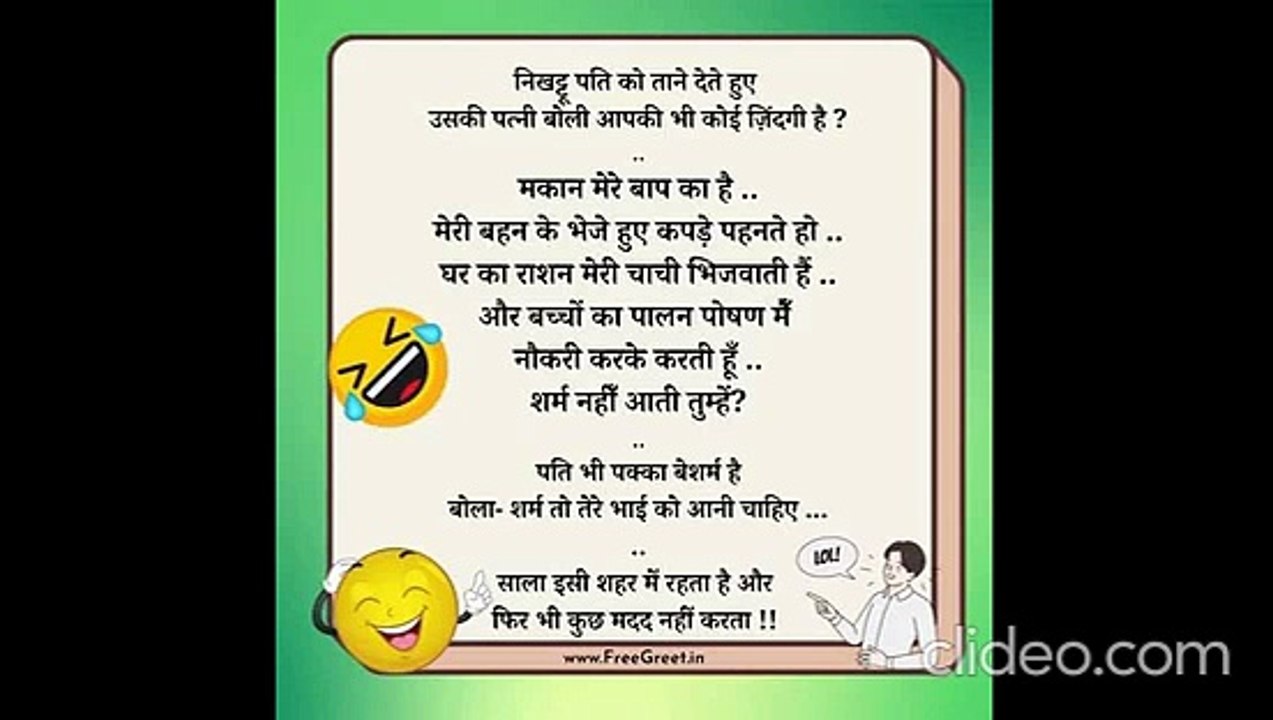 निखट्टू पति को ताने देते हुए
उसकी पत्नी बोली आपकी भी कोई ज़िंदगी है ?
..
मकान मेरे बाप का है ..
मेरी बहन के भेजे हुए कपड़े पहनते हो ..
घर का राशन मेरी चाची भिजवाती हैं ..
और बच्चों का पालन पोषण मैं
नौकरी करके करती हूँ ..
शर्म नहीं आती तुम्हें?
..
पति भी पक्का बेशर्म है
बोला- शर्म तो तेरे भाई को आनी चाहिए ...
..
LOL!
साला इसी शहर में रहता है और
फिर भी कुछ मदद नहीं करता !!
www.FreeGreet.in
clideo.com